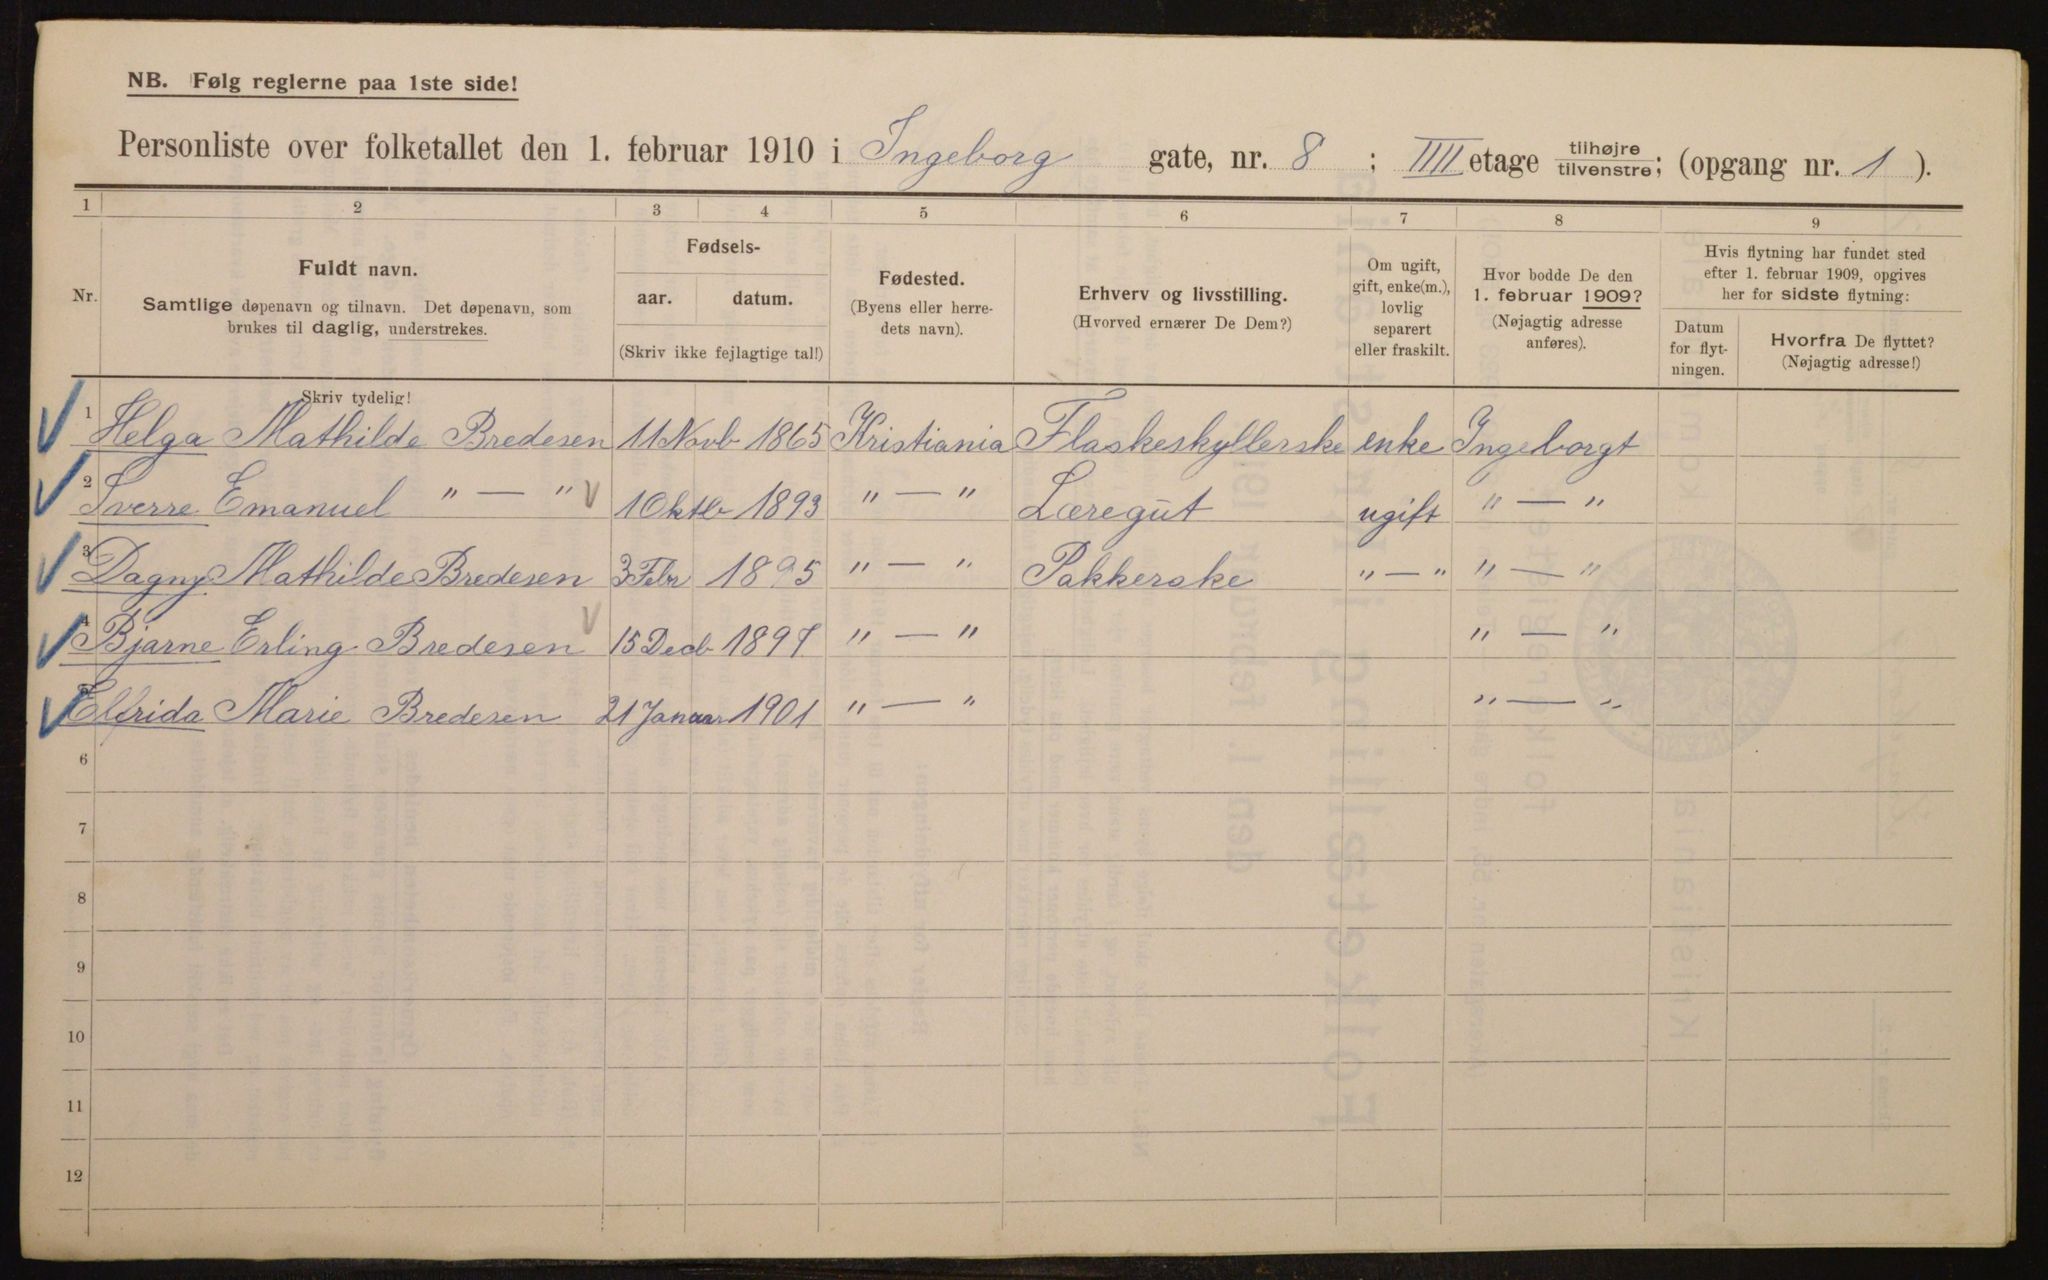 NB. Følg reglerne paa 1ste side!
Personliste over folketallet den 1. februar 1910 i Ingeborg gate, nr. 8 ; IIII etage tilhøjre tilvenstre; (opgang nr. 1 ).
1 2 3 4 5 6 7 8 9
Nr.
Fuldt navn.
Samtlige døpenavn og tilnavn. Det døpenavn, som
brukes til daglig, understrekes.
Skriv tydelig!
Fødsels-
aar. datum.
(Skriv ikke fejlagtige tal!)
Fødested.
(Byens eller herre-
dets navn).
Erhverv og livsstilling.
(Hvorved ernærer De Dem?)
Om ugift,
gift, enke(m.),
lovlig
separert
eller fraskilt.
Hvor bodde De den
1. februar 1909?
(Nøjagtig adresse
anføres).
Hvis flytning har fundet sted
efter 1. februar 1909, opgives
her for sidste flytning:
Datum
for flyt-
ningen.
Hvorfra De flyttet?
(Nøjagtig adresse!)
1 Helga Mathilde Bredesen 11 Novb 1865 Kristiania Flaskeskyllerske enke Ingeborgt
2 Sverre Emanuel " — " 1 Oktb 1893 " — " Læregut ugift " — "
3 Dagny Mathilde Bredesen 3 Febr 1895 " — " Pakkerske " — " " — "
4 Bjarne Erling Bredesen 15 Decb 1897 " — " " — "
5 Elfrida Marie Bredesen 21 Januar 1901 " — " " — "
6
7
8
9
10
11
12